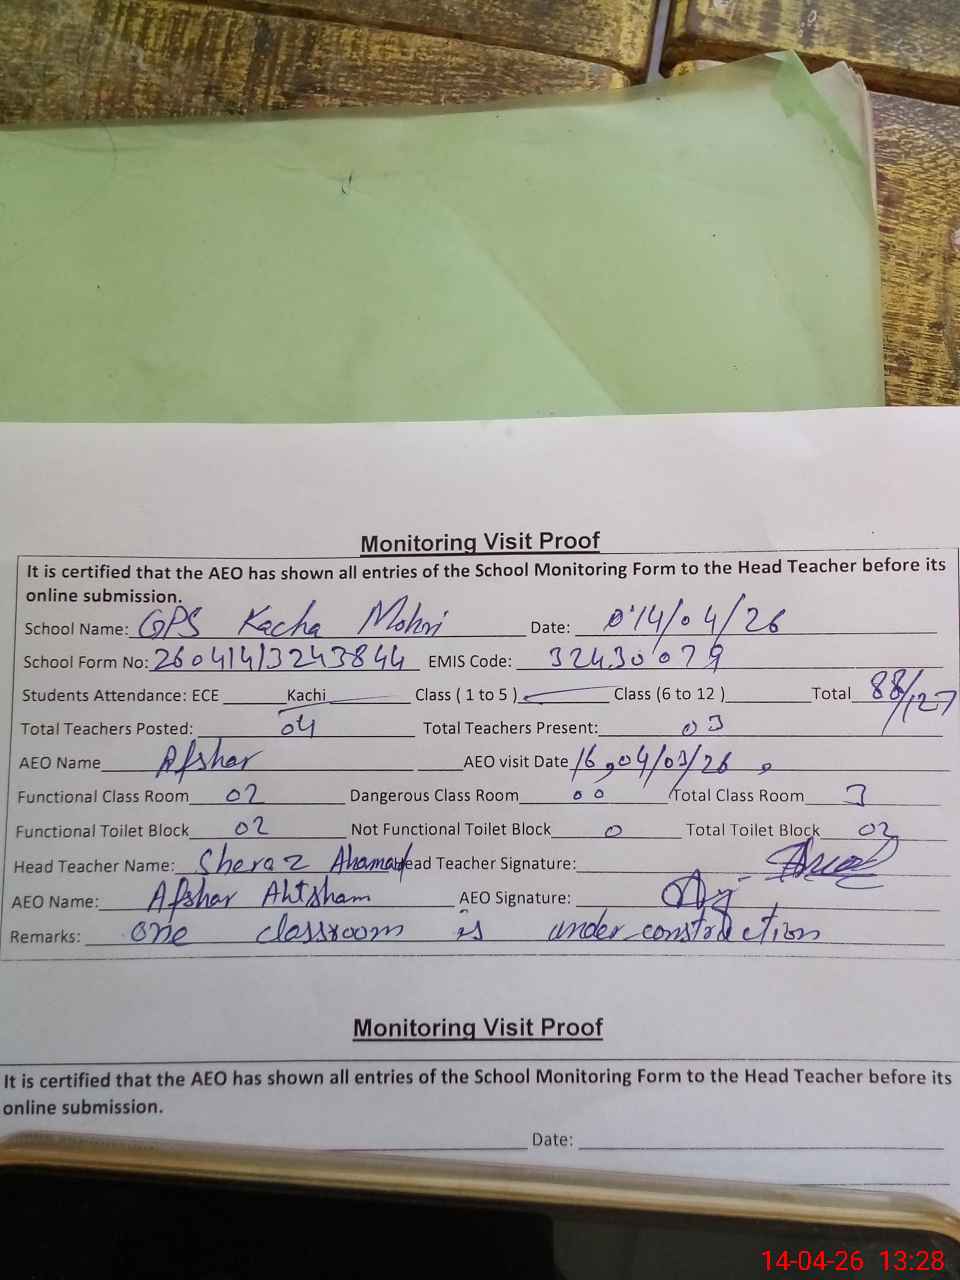 Monitoring Visit Proof
It is certified that the AEO has shown all entries of the School Monitoring Form to the Head Teacher before its
online submission.
School Name: GPS Kacha Mohri Date: 014/04/26
School Form No: 26041413243844 EMIS Code: 32430079
Students Attendance: ECE Kachi Class ( 1 to 5 ) Class (6 to 12 ) Total 88/127
Total Teachers Posted: 04 Total Teachers Present: 03
AEO Name Afshar AEO visit Date 16,04/03/26,
Functional Class Room 02 Dangerous Class Room 00 Total Class Room 3
Functional Toilet Block 02 Not Functional Toilet Block 0 Total Toilet Block 02
Head Teacher Name: Sheraz Ahamad Head Teacher Signature:
AEO Name: Afshar Ahtsham AEO Signature:
Remarks: one classroom is under construction
Monitoring Visit Proof
It is certified that the AEO has shown all entries of the School Monitoring Form to the Head Teacher before its
online submission.
Date:
14-04-26 13:28